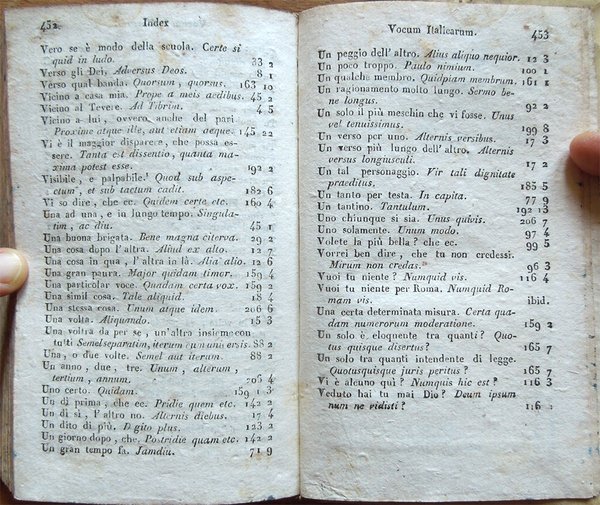 452 Index
Vero se è modo della scuola. Certe si
quid in ludo. 33 2
Verso gli Dei. Adversus Deos. 8 1
Verso qual banda. Quorsum, quorsus. 163 10
Vicino a casa mia. Prope a meis aedibus. 45 2
Vicino al Tevere. Ad Tibrim. 4 5
Vicino a lui, ovvero anche del pari
Proxime atque ille, aut etiam aeque. 145 22
Vi è il maggior disparere, che possa es-
sere. Tanta est dissentio, quanta ma-
xima potest esse. 22 2
Visibile, e palpabile. Quod sub aspe-
ctum, et sub tactum cadit. 182 6
Vi so dire, che ec. Quidem certe etc. 160 4
Una ad una, e in lungo tempo. Singula-
tim, ac diu. 45 1
Una buona brigata. Bene magna caterva. 29 2
Una cosa dopo l'altra. Aliud ex alto. 12 7
Una cosa in qua, l'altra in là. Alia alio. 12 6
Una gran paura. Major quidam timor. 159 4
Una particolar voce. Quadam certa vox. 159 4
Una simil cosa. Tale aliquid. 18 4
Una stessa cosa. Unum atque idem. 206 6
Una volta. Aliquando. 15 3
Una voltra da per se, un'altra insieme con
tutti Semel separatim, iterum cum universis. 88 2
Una, o due volte. Semel aut iterum. 88 2
Un anno, due, tre. Unum, alterum,
tertium, annum. 206 4
Uno certo. Quidam. 159 1 3
Un dì prima, che ec. Pridie quem etc. 142 2
Un dì sì, l'altro no. Alternis diebus. 17 4
Un dito di più. Digito plus. 123 2
Un giorno dopo, che. Postridie quam etc. 142 2
Un gran tempo fa. Jamdiu. 71 9
Vocum Italicarum. 453
Un peggio dell'altro. Alius aliquo nequior. 12 3
Un poco troppo. Paulo nimium. 100 1
Un qualche membro. Quidpiam membrum. 161 1
Un ragionamento molto lungo. Sermo be-
ne longus. 92 2
Un solo il più meschin che vi fosse. Unus
vel tenuissimus. 199 8
Un verso per uno. Alternis versibus. 17 3
Un verso più lungo dell'altro. Alternis
versus longiusculi. 17 2
Un tal personaggio. Vir tali dignitate
praeditus. 185 5
Un tanto per testa. In capita. 77 9
Un tantino. Tantulum. 192 13
Uno chiunque si sia. Unus quivis. 206 7
Uno solamente. Unum modo. 97 4
Volete la più bella? che ec. 99 5
Vorrei ben dire, che tu non credessi.
Mirum non credas. 96 3
Vuoi tu niente? Numquid vis. 116 4
Vuoi tu niente per Roma. Numquid Ro-
mam vis. ibid.
Una certa determinata misura. Certa qua-
dam numerorum moderatione. 159 2
Un solo è eloquente tra quanti? Quo-
tus quisque disertus? 165 7
Un solo tra quanti intendente di legge.
Quotusquisque juris peritus? 165 7
Vi è alcuno qui? Numquis hic est? 116 3
Veduto hai tu mai Dio? Deum ipsum
num ne vidisti? 116